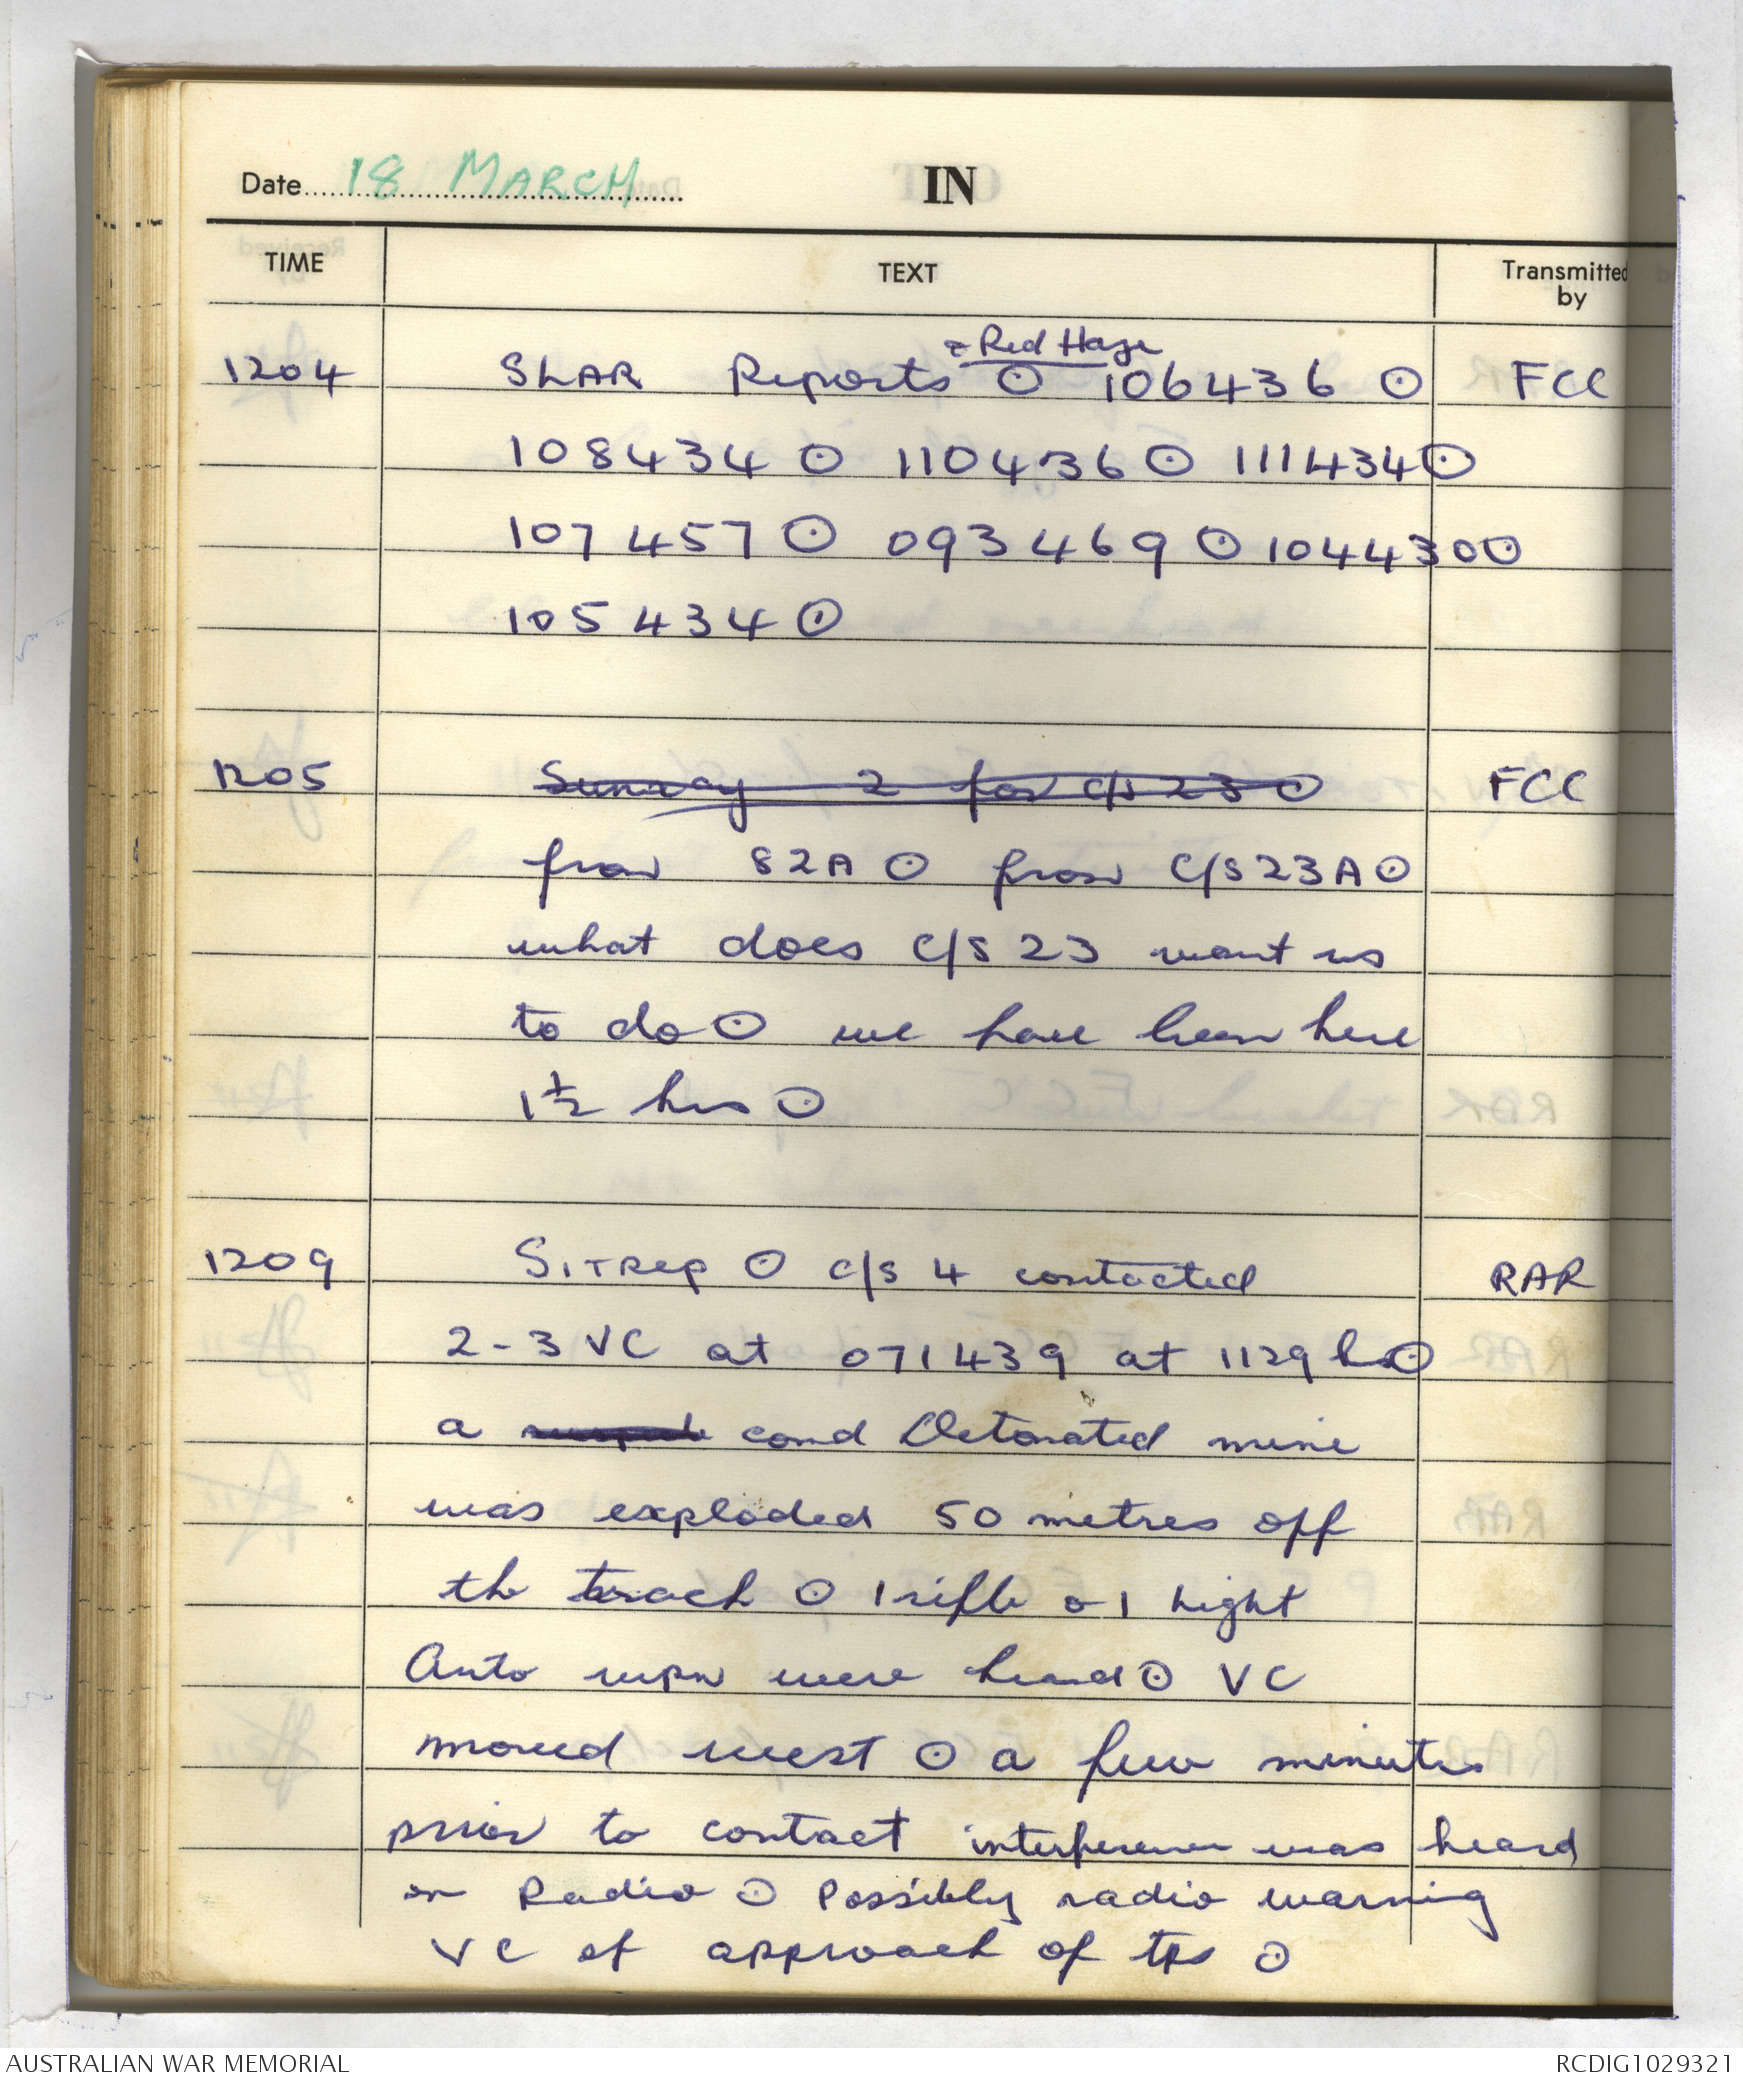 Date 18 MARCH
IN
TIME TEXT Transmitted by
& Red Haze
1204 SLAR Reports ⊙ 106436 ⊙ FCC
108434 ⊙ 110436 ⊙ 111434 ⊙
107457 ⊙ 093469 ⊙ 104430 ⊙
105434 ⊙
1205 Sunray 2 for c/s 23 ⊙ FCC
from 82A ⊙ from C/S 23A ⊙
what does C/S 23 want us
to do ⊙ we have been here
1½ hrs ⊙
1209 SITREP ⊙ c/s 4 contacted RAR
2-3 VC at 071439 at 1129 hrs ⊙
a comd Detonated mine
was exploded 50 metres off
the track ⊙ 1 rifle & 1 light
Auto wpn were heard ⊙ VC
moved west ⊙ a few minutes
prior to contact interference was heard
on Radio ⊙ Possibly radio warning
VC of approach of tps ⊙
AUSTRALIAN WAR MEMORIAL RCDIG1029321